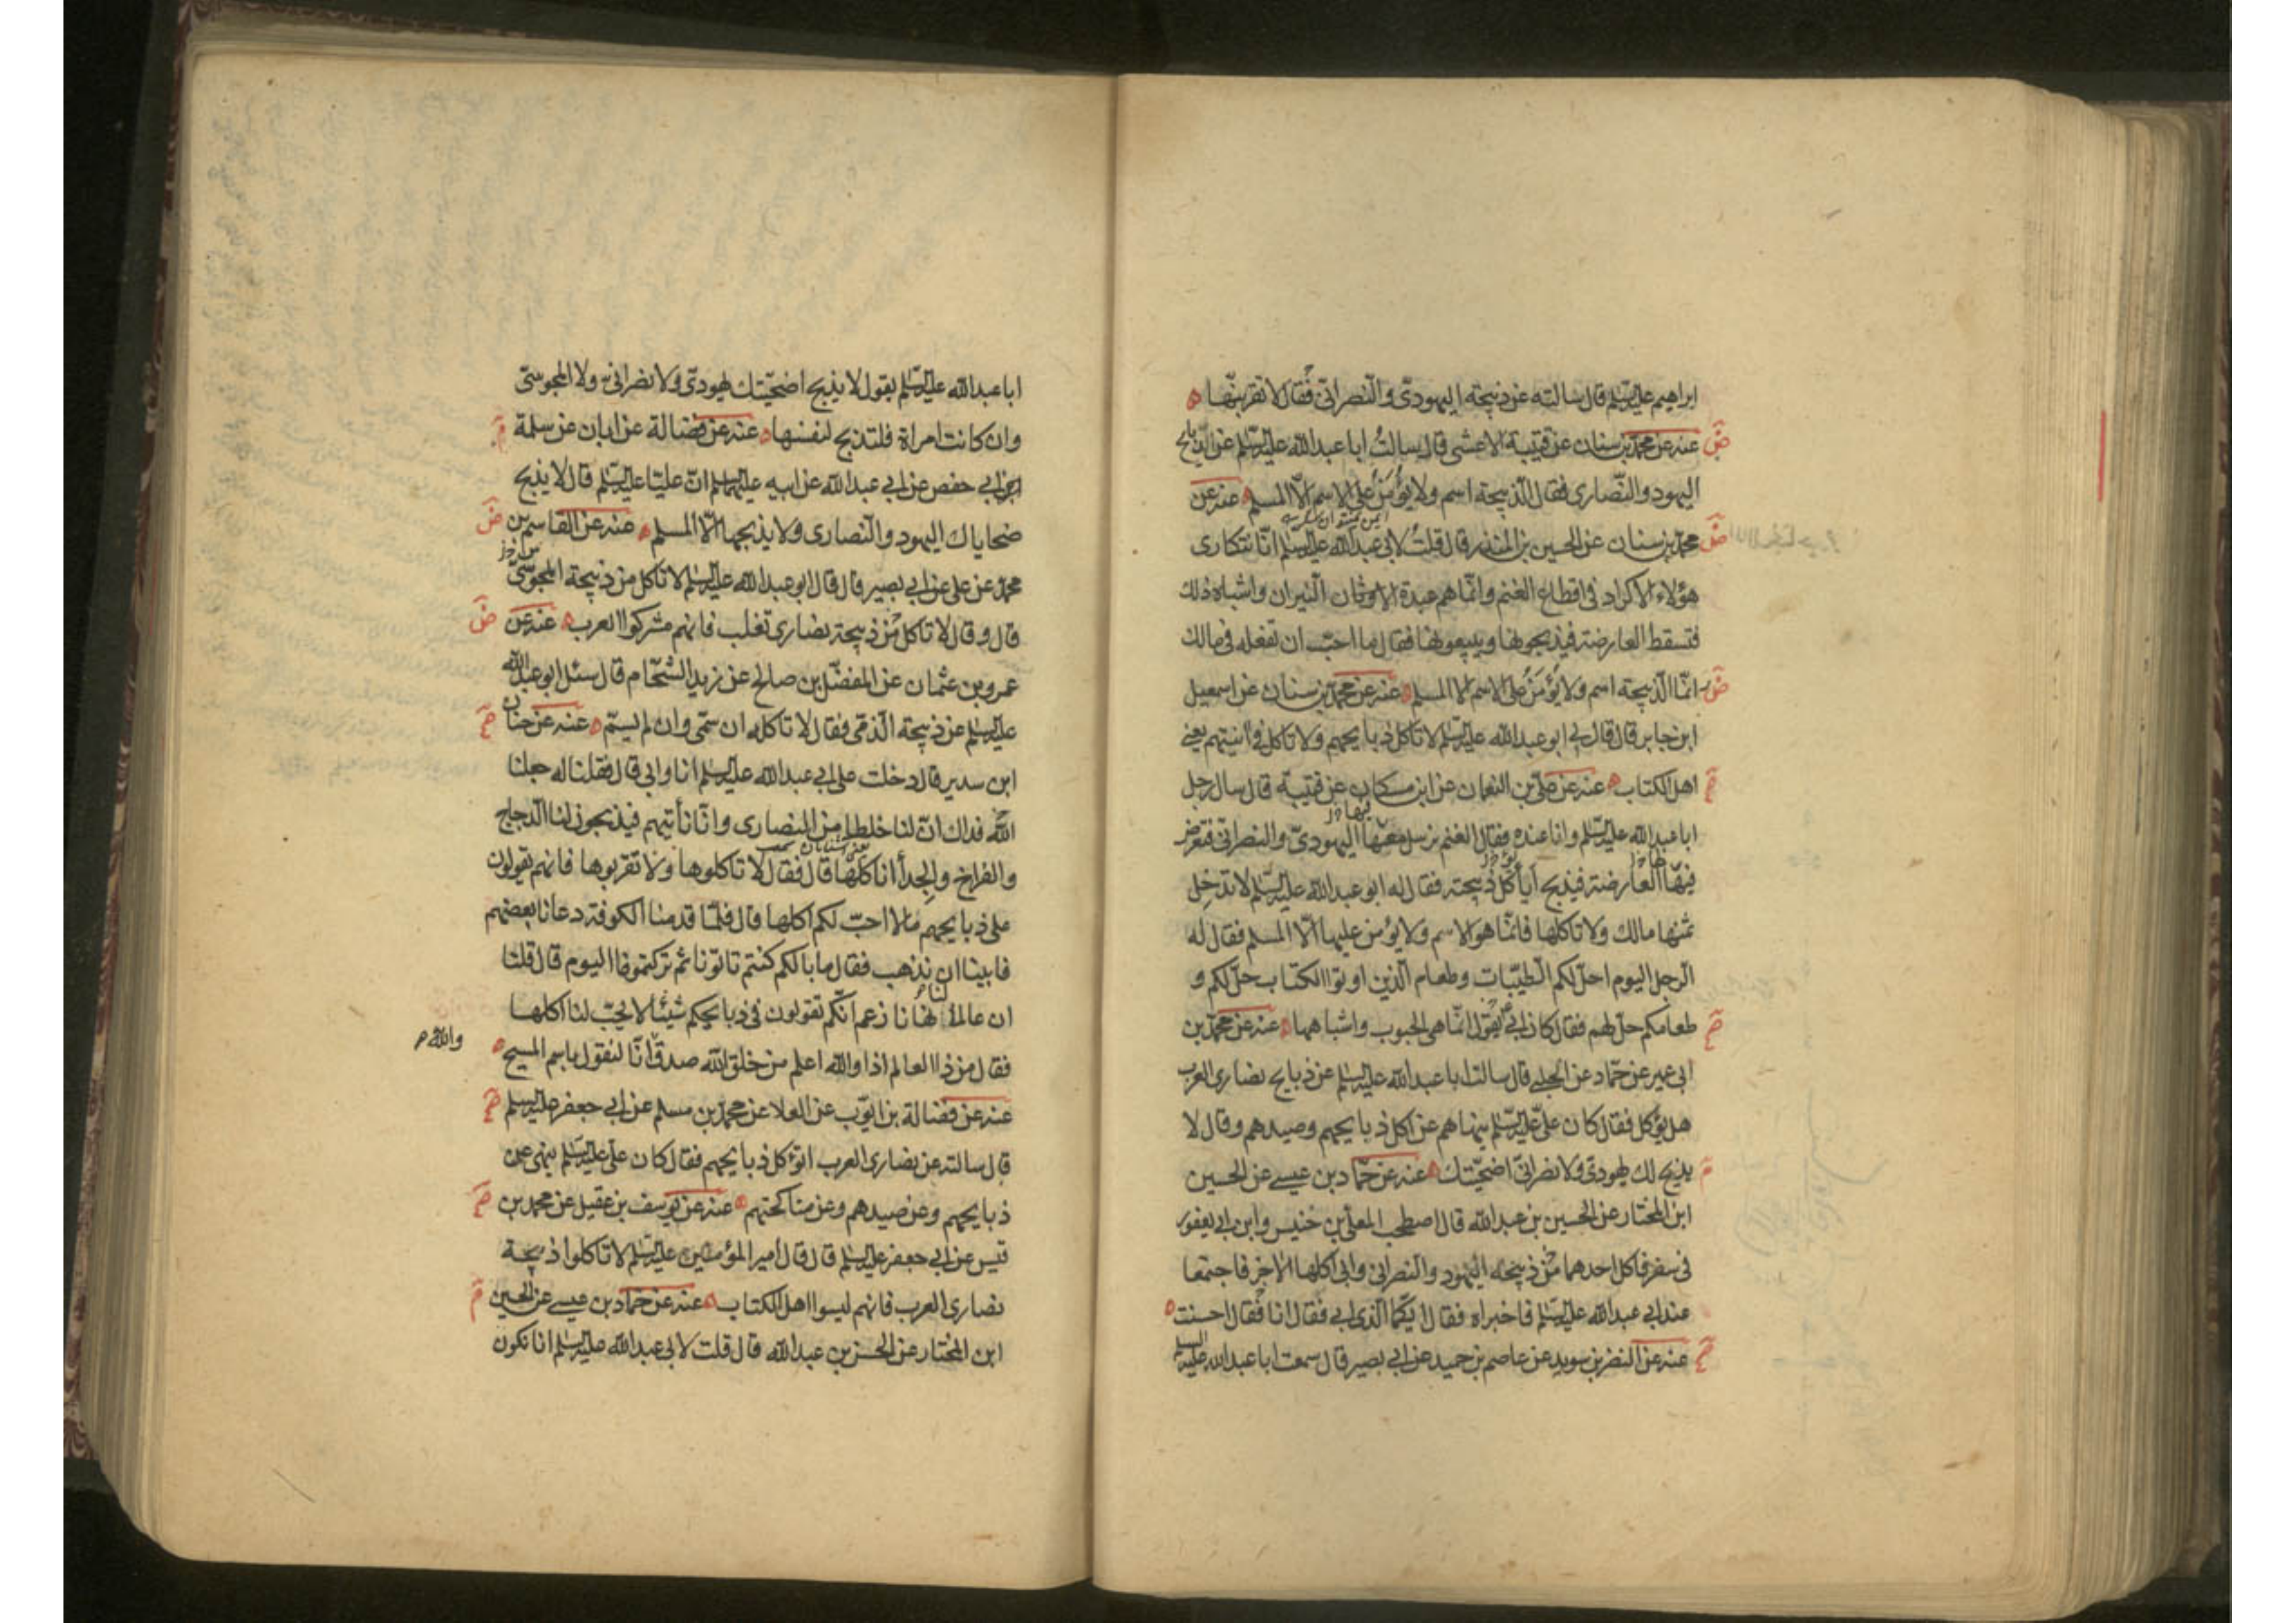 ابراهيم عليه السلم قال سالته عن ذبيحة اليهودىّ والنصرانىّ فقال لا تقربنّها
عنه عن محمد بن سنان عن قتيبة الاعشى قال سالتُ ابا عبد الله عليه السلم عن الذبايح
اليهود والنّصارى فقال الذّبيحة اسم ولا يؤمَنُ على الاسم الّا المسلم عنه عن
محمد بن سنان عن الحسين بن المنذر قال قلتُ لابى عبد الله عليه السلم انّا نتكارى
هؤلاء الاكراد فى اقطاع الغنم وانّما هم عبدة الاوثان النّيران واشباه ذلك
فتسقط العارضة فيذبحونها ويبيعونها فقال ما احبّ ان تفعله فى مالك
انّما الذّبيحة اسم ولا يؤمَنُ على الاسم الا المسلم عنه عن محمد بن سنان عن اسمعيل
ابن جابر قال قال لى ابو عبد الله عليه السلم لا تاكل ذبايحهم ولا تاكل فى انيتهم يعنى
اهل الكتاب عنه عن علىّ بن النعمان عن ابن مسكان عن قتيبة قال سال رجل
ابا عبد الله عليه السلم وانا عنده فقال الغنم نرسل معها اليهودىّ والنصرانىّ فتعرض
فيها العارضة فيذبح أيأكل ذبيحته فقال له ابو عبد الله عليه السلم لا تدخل
ثمنها مالك ولا تاكلها فانّما هو الاسم ولا يؤمن عليها الّا المسلم فقال له
الرجل اليوم احلّ لكم الطّيّبات وطعام الّذين اوتوا الكتاب حلّ لكم و
طعامكم حلّ لهم فقال كان ابى يقول انّما هى الحبوب واشباهها عنه عن محمد بن
ابى عمير عن حمّاد عن الحلبى قال سالت ابا عبد الله عليه السلم عن ذبايح نصارى العرب
هل يؤكل فقال كان علىّ عليه السلم ينهاهم عن اكل ذبايحهم وصيدهم وقال لا
يذبح لك يهودىّ ولا نصرانىّ اضحيّتك عنه عن حمّاد بن عيسى عن الحسين
ابن المختار عن الحسين بن عبد الله قال اصطحب المعلّى بن خنيس وابن ابى يعفور
فى سفر فاكل احدهما من ذبيحة اليهود والنصرانى وابى اكلها الاخر فاجتمعا
عند ابى عبد الله عليه السلم فاخبراه فقال ايّكما الّذى ابى فقال انا فقال احسنت
عنه عن النضر بن سويد عن عاصم بن حميد عن ابى بصير قال سمعت ابا عبد الله عليه السلم
ابا عبد الله عليه السلم يقول لا يذبح اضحيّتك يهودىّ ولا نصرانىّ ولا المجوسىّ
وان كانت امراة فلتذبح لنفسها عنه عن فضالة عن ابان عن سلمة
ابى حفص عن ابى عبد الله عن ابيه عليهما السلم انّ عليّا عليه السلم قال لا يذبح
ضحاياك اليهود والنّصارى ولا يذبحها الّا المسلم عنه عن القاسم بن
محمد عن على عن ابى بصير قال قال ابو عبد الله عليه السلم لا تاكل من ذبيحة المجوسىّ
قال وقال لا تاكل من ذبيحة نصارى تغلب فانهم مشركوا العرب عنه عن
عمرو بن عثمان عن المفضّل بن صالح عن زيد الشحّام قال سئل ابو عبد الله
عليه السلم عن ذبيحة الذّمّى فقال لا تاكله ان سمّى وان لم يسمّ عنه عن حنان
ابن سدير قال دخلت على ابى عبد الله عليه السلم انا وابى قال فقلنا له جعلنا
الله فداك انّ لنا خلطا من النصارى وانّا نأتيهم فيذبحون لنا الدّجاج
والفراخ والجداأ انا كلها قال فقال لا تاكلوها ولا تقربوها فانهم يقولون
على ذبايحهم ما لا احبّ لكم اكلها قال فلمّا قدمنا الكوفة دعانا بعضهم
فابينا ان نذهب فقال ما بالكم كنتم تاتونا ثم تركتمونا اليوم قال قلنا
ان عالما لنا نهانا زعم انّكم تقولون فى ذبايحكم شيئا لا يحبّ لنا اكلها
فقال من ذا العالم اذا والله اعلم من خلق الله صدق انّا لنقول باسم المسيح
والله
عنه عن فضالة بن ايّوب عن العلا عن محمد بن مسلم عن ابى جعفر عليه السلم
قال سالته عن نصارى العرب اتؤكل ذبايحهم فقال كان علىّ عليه السلم ينهى عن
ذبايحهم وعن صيدهم وعن مناكحتهم عنه عن يوسف بن عقيل عن محمد بن
قيس عن ابى جعفر عليه السلم قال قال امير المؤمنين عليه السلم لا تاكلوا ذبيحة
نصارى العرب فانهم ليسوا اهل الكتاب عنه عن حمّاد بن عيسى عن الحسين
ابن المختار عن الحسين بن عبد الله قال قلت لابى عبد الله عليه السلم انا نكون